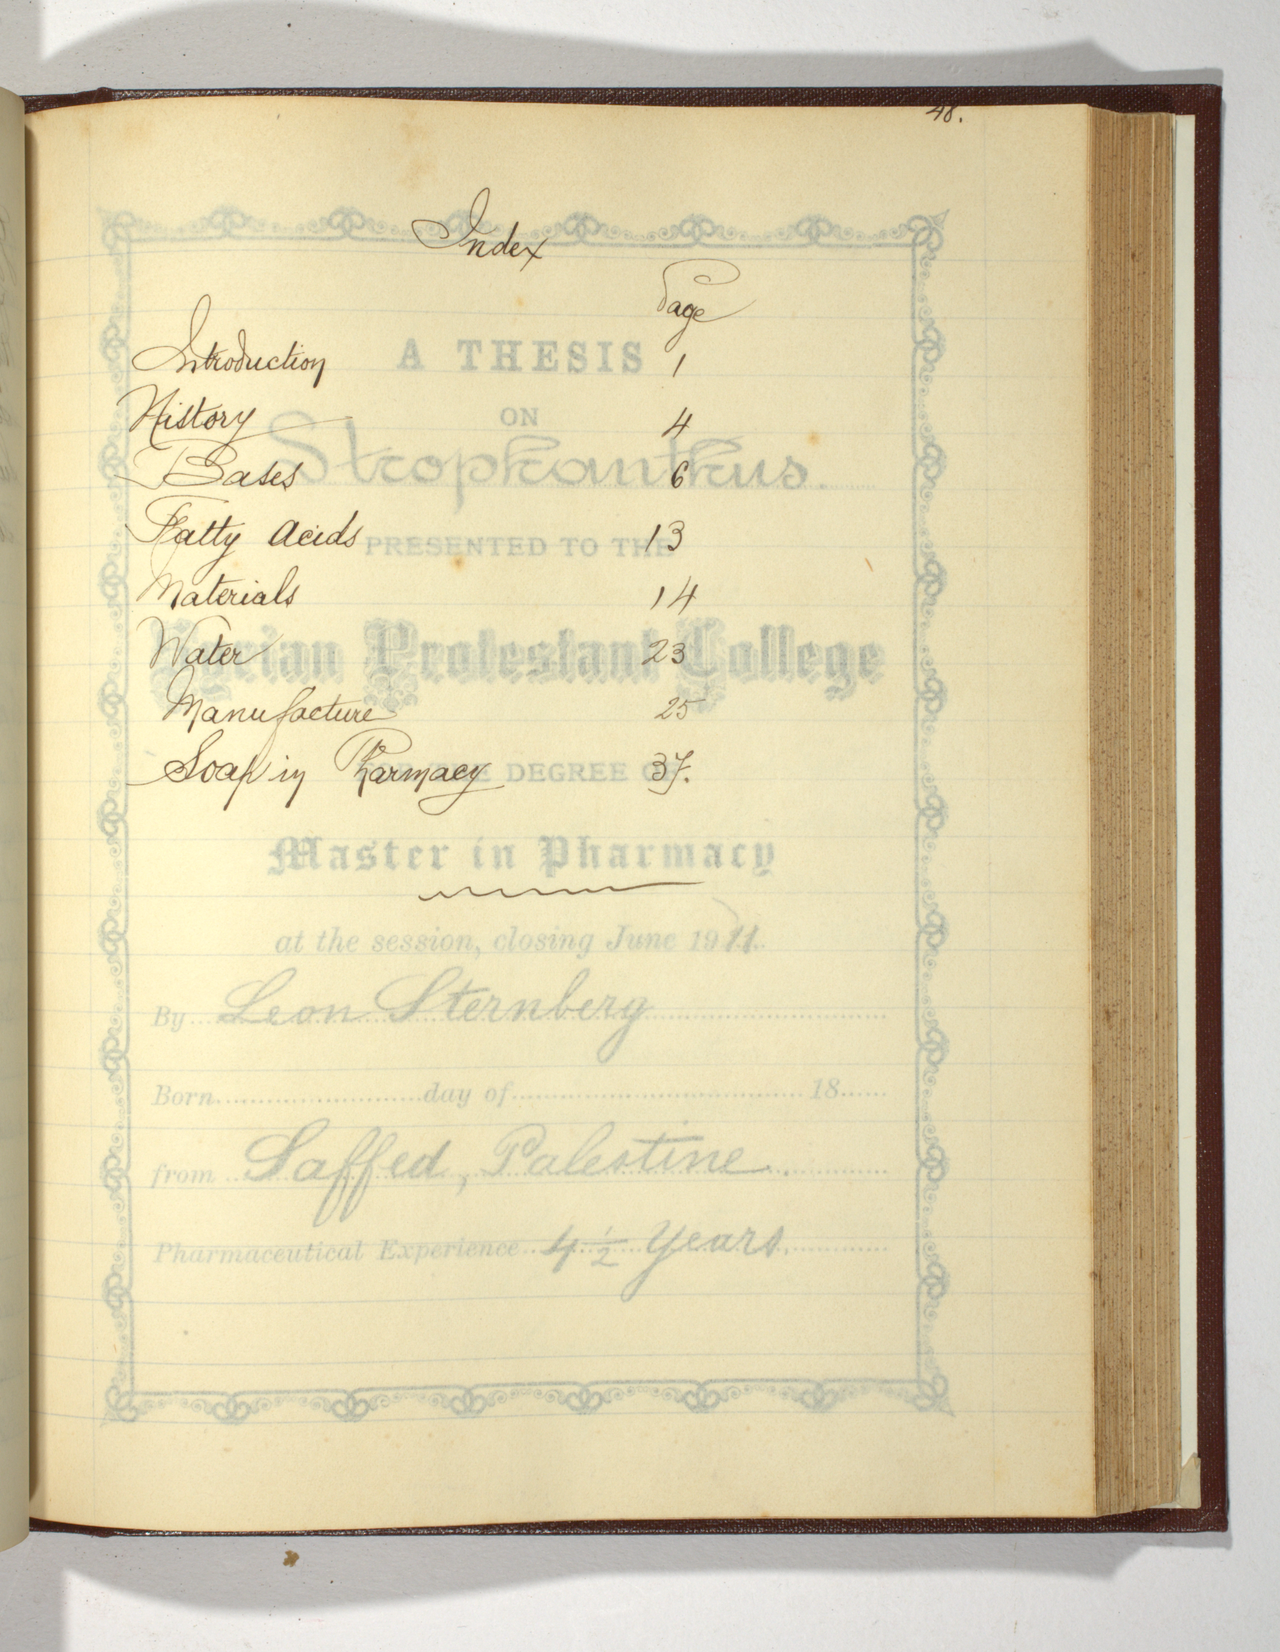 48.
Index
Page
Introduction 1
History 4
Bases 6
Fatty Acids 13
Materials 14
Water 23
Manufacture 25
Soap in Pharmacy 37.
A THESIS
ON
Strophanthus.
PRESENTED TO THE
Syrian Protestant College
FOR THE DEGREE OF
Master in Pharmacy
at the session, closing June 1911.
By Leon Sternberg
Born day of 18
from Saffed, Palestine.
Pharmaceutical Experience 4 1/2 Years.